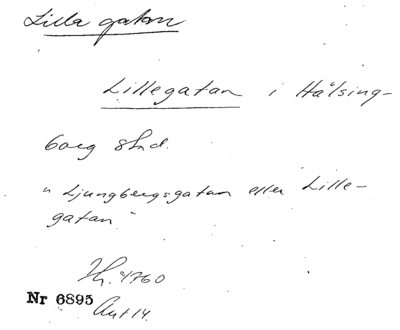 Lilla gatan
Lillegatan i Hälsing-
borg std.
"Ljungbergsgatan eller Lille-
gatan"
4760
Nr 6895
Ant 14.